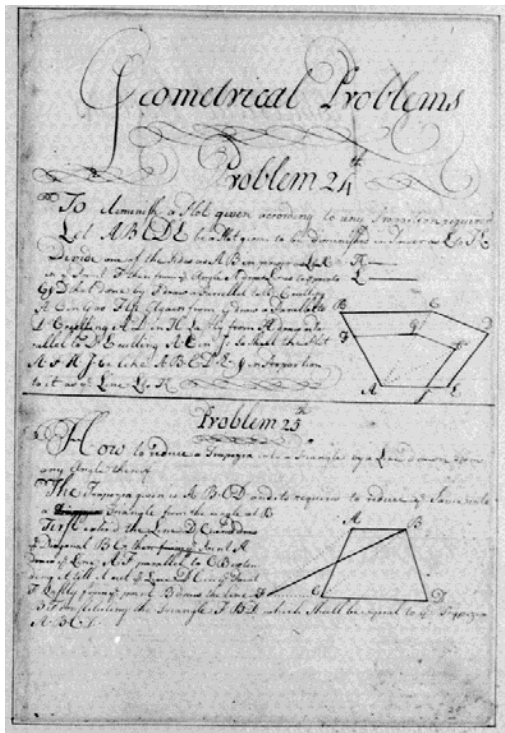 Geometrical Problems
Problem 24th
To diminish a Plot given according to any Proportion required
Let A B C D E be a Plot given to be diminished in Power as L to K
Divide one of the sides as A B in power as L to K
in y Point F then from y Angle A draw Lines to points
C & D that done by F draw a Parallel to B C cutting
A C in G as F G Again from G draw a Parallel to
D C cutting A D in H Lastly from H draw a
rallel to D E cutting A E in J So shall the Plot
A F G H J be like A B C D E in Proportion
to it as y Line L to K
K
L
B
C
D
F
G
H
A
E
Problem 25th
How to reduce a Trapezia into a Triangle by a Line drawn from
any Angle thereof
The Trapezia given is A B C D and it is required to reduce y Same into
a Triangle from the angle at B
First extend the Line D C and draw
y Diagonal B C then from y Point A
draw y Line A F parallel to C B exten
ding it till it cut y Line D C in y Point
F Lastly from y point B draw the Line
B F constituting the Triangle F B D which shall be equal to y Trapezia
A B C D
A
B
F
C
D